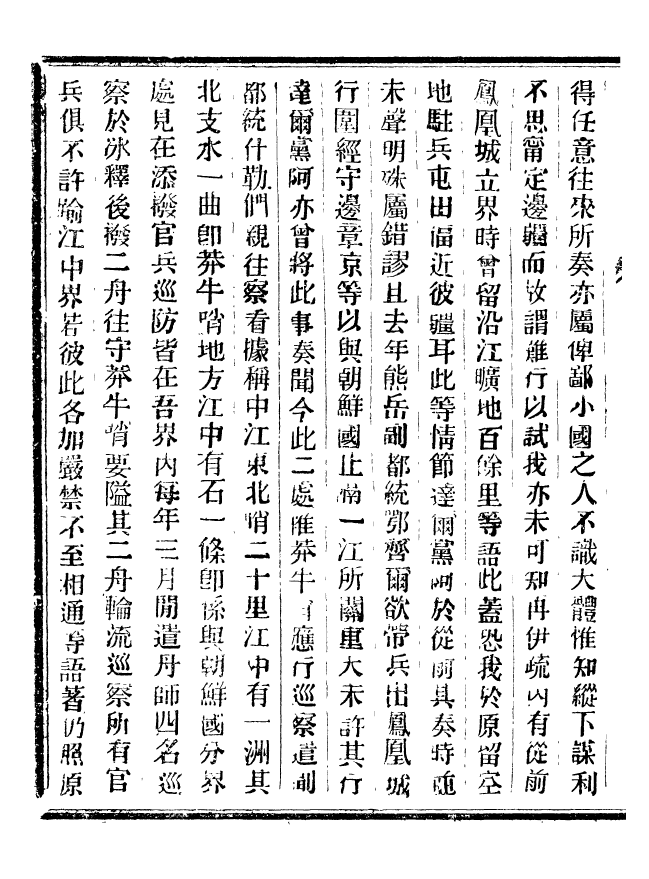 得任意往來所奏亦屬俾鄙小國之人不識大體惟知縱下謀利
不思甯定邊疆而故謂難行以試我亦未可知再伊疏內有從前
鳳凰城立界時曾留沿江曠地百餘里等語此蓋恐我於原留空
地駐兵屯田偪近彼疆耳此等情節達爾黨阿於從前具奏時並
未聲明殊屬錯謬且去年熊岳副都統鄂齊爾欲帶兵出鳳凰城
行圍經守邊章京等以與朝鮮國止隔一江所關重大未許其行
達爾黨阿亦曾將此事奏聞今此二處惟莽牛哨應行巡察遣副
都統什勒們親往察看據稱中江東北哨二十里江中有一洲其
北支水一曲卽莽牛哨地方江中有石一條卽係與朝鮮國分界
處見在添撥官兵巡防皆在吾界內每年三月間遣舟師四名巡
察於冰釋後撥二舟往守莽牛哨要隘其二舟輪流巡察所有官
兵俱不許踰江中界若彼此各加嚴禁不至相通等語著仍照原